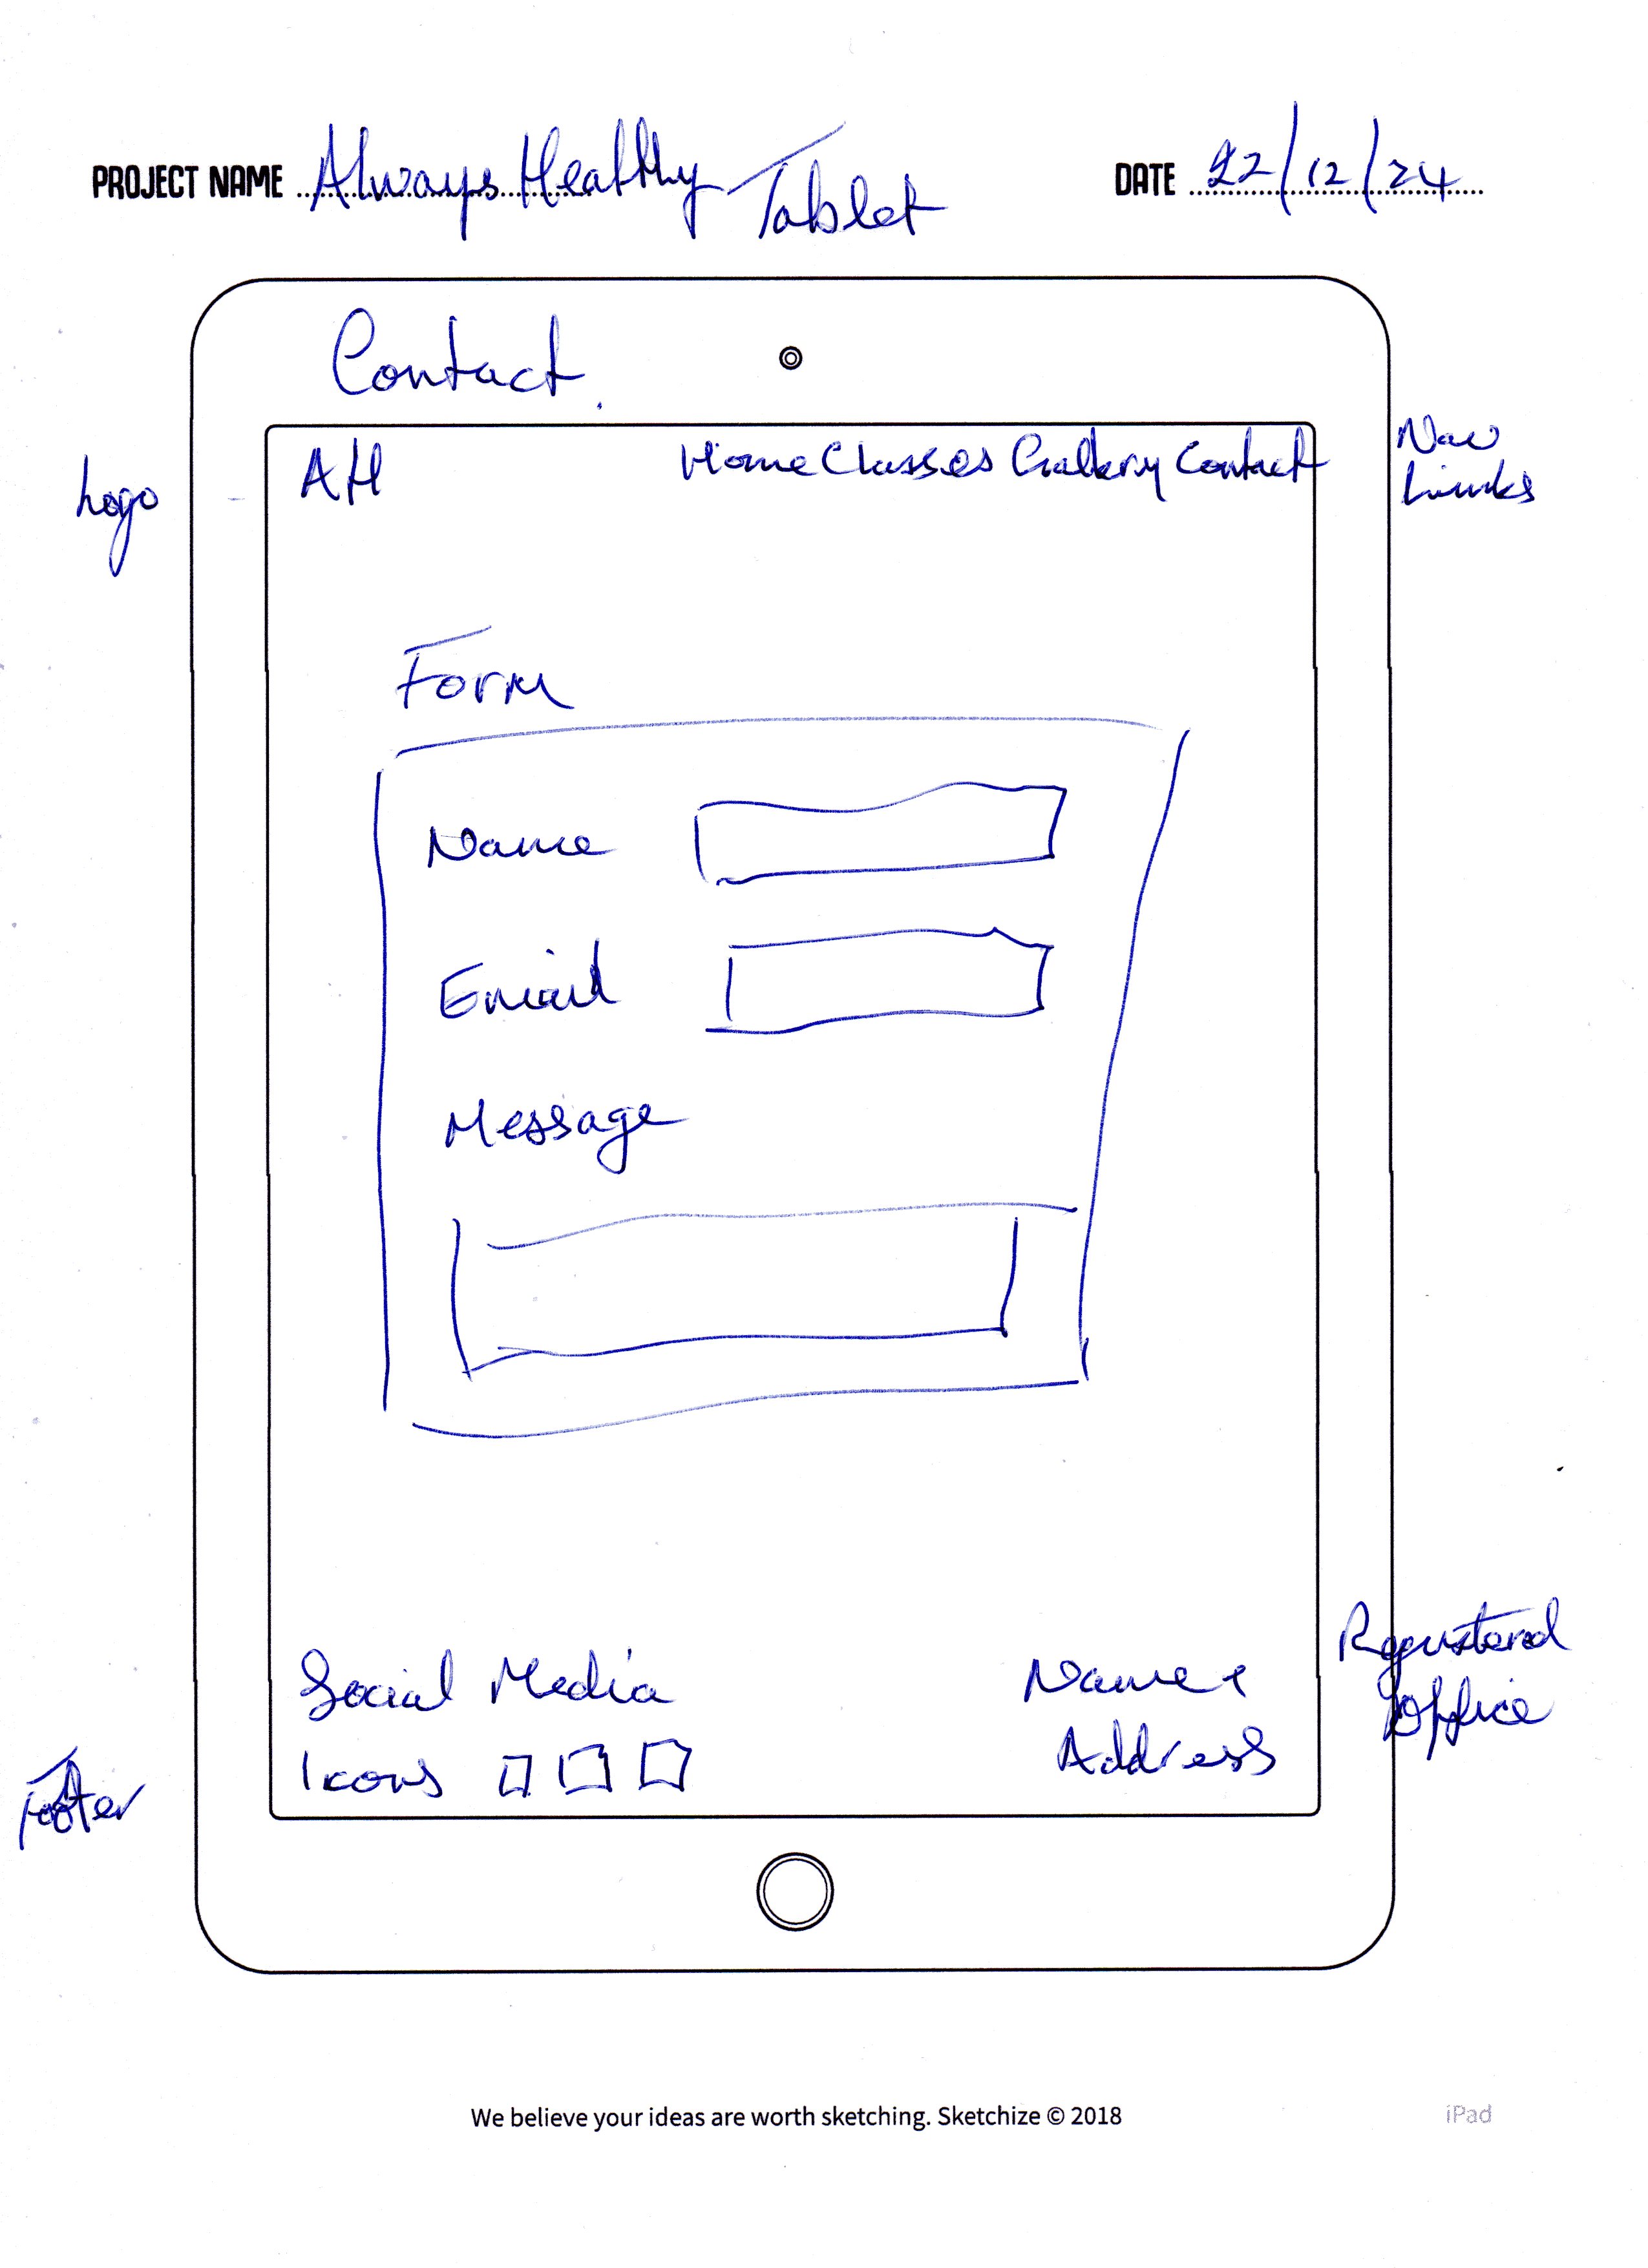 PROJECT NAME Always Healthy Tablet DATE 22/12/24
Contact
AH Home Classes Gallery Contact
Nav
Links
Logo
Form
Name
Email
Message
Social Media
Icons
Name +
Address
Registered
Office
Footer
We believe your ideas are worth sketching. Sketchize © 2018 iPad